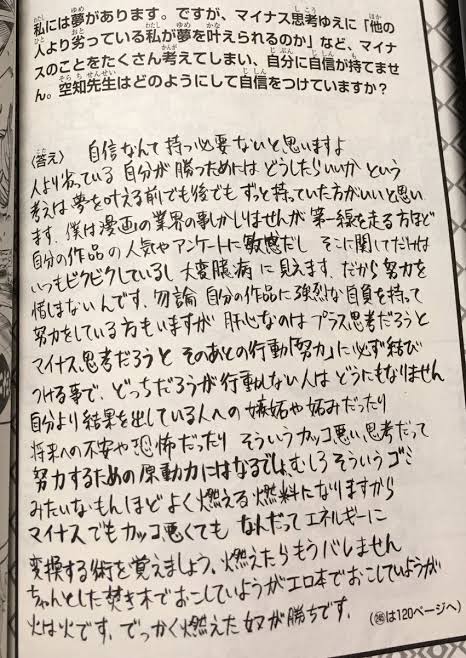 私には夢があります。ですが、マイナス思考ゆえに「他の
人より劣っている私が夢を叶えられるのか」など、マイナ
スのことをたくさん考えてしまい、自分に自信が持てませ
ん。空知先生はどのようにして自信をつけていますか？
〈答え〉 自信なんて持つ必要ないと思いますよ
人より劣っている 自分が勝つためにはどうしたらいいか という
考えは夢を叶える前でも後でも ずっと持っていた方がいいと思い
ます。僕は漫画の業界の事しかしりませんが 第一線を走る方ほど
自分の作品の人気やアンケートに敏感だし そこに関してだけは
いつもビクビクしているし 大変臆病に見えます。だから努力を
惜しまないんです。勿論 自分の作品に強烈な自負を持って
努力をしている方もいますが 肝心なのはプラス思考だろうと
マイナス思考だろうと そのあとの行動「努力」に必ず結び
つける事で、どっちだろうが行動しない人は どうにもなりません
自分より結果を出している人への嫉妬や妬みだったり
将来への不安や恐怖だったり そういうカッコ悪い思考だって
努力するための原動力にはなるでしょ むしろそういうゴミ
みたいなもんほど よく燃える燃料になりますから
マイナスでもカッコ悪くても なんだって エネルギーに
変換する術を覚えましょう、燃えたらもうバレません
ちゃんとした焚き木でおこしていようがエロ本でおこしていようが
火は火です。でっかく燃えた奴が勝ちです。
(㊱は120ページへ)